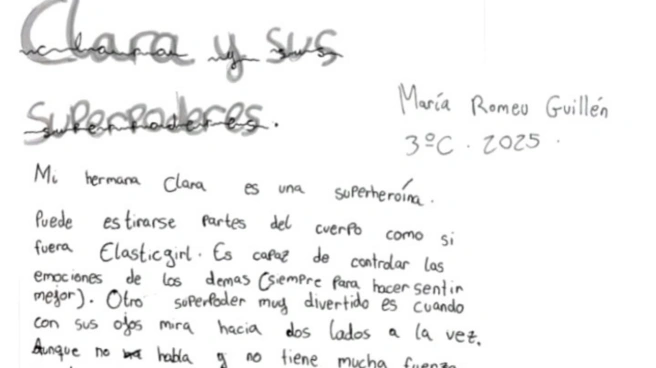 Clara y sus
Superpoderes.
María Romeo Guillén
3ºC. 2025.
Mi hermana Clara es una superheroína.
Puede estirarse partes del cuerpo como si
fuera Elasticgirl. Es capaz de controlar las
emociones de los demas (siempre para hacer sentir
mejor). Otro superpoder muy divertido es cuando
con sus ojos mira hacia dos lados a la vez.
Aunque no habla y no tiene mucha fuerza